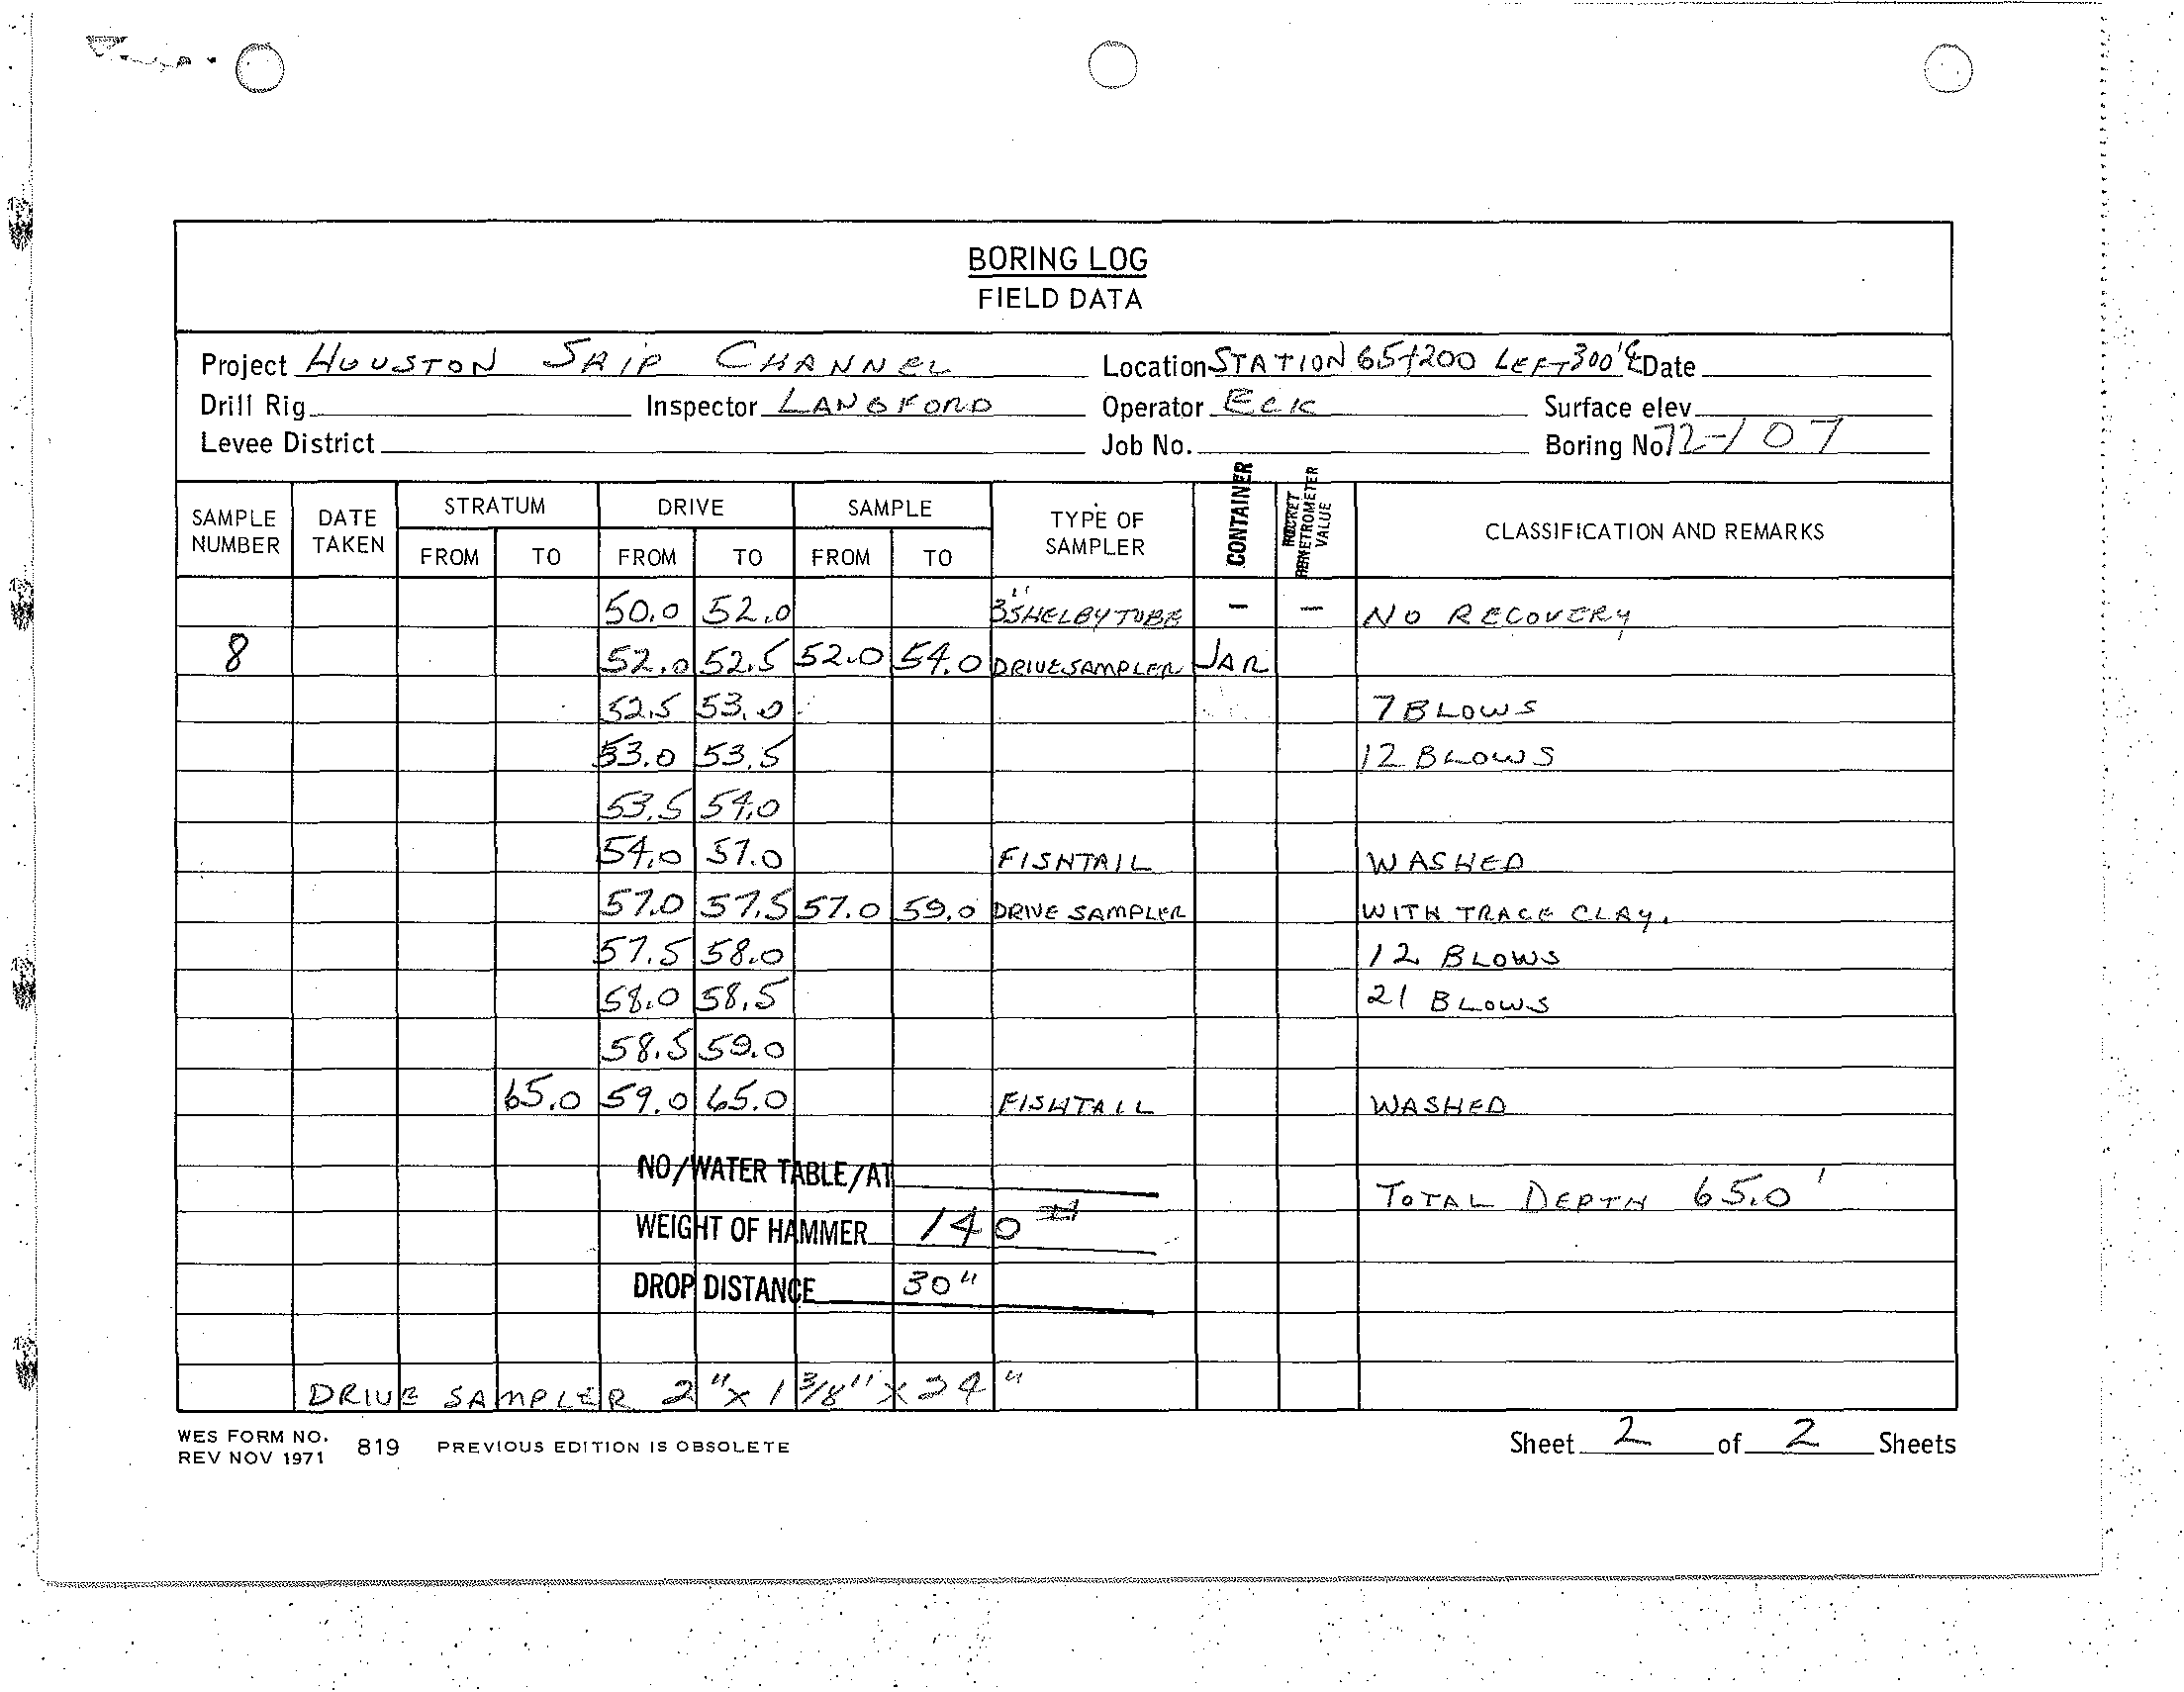 BORING LOG
FIELD DATA
Project HOUSTON SHIP CHANNEL Location STATION 65+200 LEFT 300' ℄ Date
Drill Rig Inspector LANGFORD Operator ECK Surface elev.
Levee District Job No. Boring No. 72-107
SAMPLE NUMBER DATE TAKEN STRATUM FROM TO DRIVE FROM TO SAMPLE FROM TO TYPE OF SAMPLER CONTAINER VALUE CLASSIFICATION AND REMARKS
50.0 52.0 3" SHELBY TUBE – – NO RECOVERY
8 52.0 52.5 52.0 54.0 DRIVE SAMPLER JAR
52.5 53.0 7 BLOWS
53.0 53.5 12 BLOWS
53.5 54.0
54.0 57.0 FISHTAIL WASHED
57.0 57.5 57.0 59.0 DRIVE SAMPLER WITH TRACE CLAY.
57.5 58.0 12 BLOWS
58.0 58.5 21 BLOWS
58.5 59.0
65.0 59.0 65.0 FISHTAIL WASHED
NO/WATER TABLE/AT
TOTAL DEPTH 65.0'
WEIGHT OF HAMMER 140 #
DROP DISTANCE 30"
DRIVE SAMPLER 2" x 1 3/8" x 24"
WES FORM NO. 819 PREVIOUS EDITION IS OBSOLETE Sheet 2 of 2 Sheets
REV NOV 1971